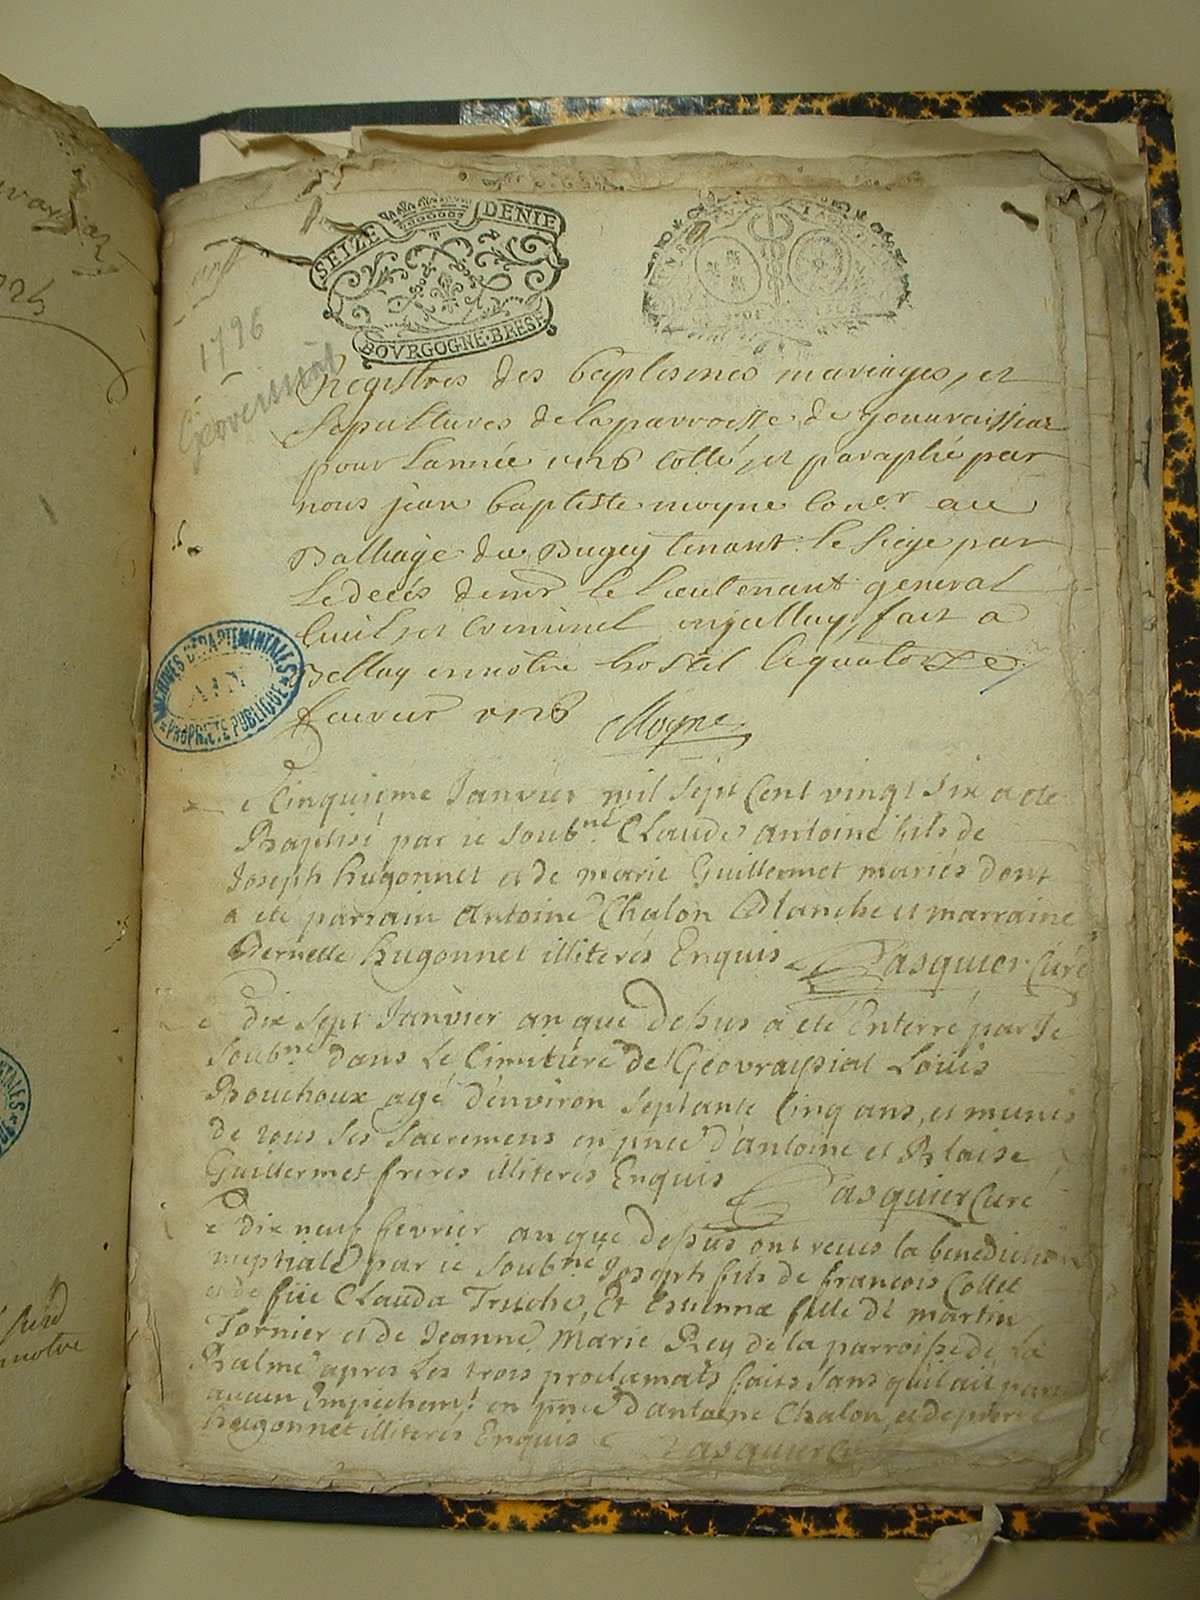 SEIZE DENIE
BOVRGOGNE·BRESE
1726
Geovreissiat
Registres des baptesmes mariages, et
sepultures de la parroisse de gouvraissiaz
pour Lannée 1726 Cotté, et paraphé par
nous jean baptiste moyne Coner au
Balliage du Bugey tenant le siege par
Le decés de mr le Lieutenant general
Civil, et Criminel fait a
Bellay en nôtre hostel le quatorze
fevrier 1726 Moyne
ARCHIVES DÉPARTEMENTALES
AIN
PROPRIÉTÉ PUBLIQUE
e Cinquieme Janvier mil sept Cent vingt six a été
Baptisé par ie soubné Claude antoine fils de
Joseph hugonnet et de marie Guillermet mariés dont
a été parrain Antoine Chalon Blanche et marraine
Pernette hugonnet illiterés Enquis Pasquier Curé
e dix sept Janvier an que dessus a été Enterré par Je
soubné dans Le Cimitiére de Géovrayssiat Louis
Bouchoux agé d'environ septante Cinq ans, et munis
de tous ses sacremens en pnce d'antoine et Blaise
Guillermet fréres illiterés Enquis Pasquier Curé
e dix neuf fevrier an que dessus ont receus la benediction
nuptiale par ie soubné Joseph fils de francois Collet
et de füe Clauda Truche, Et Estienna fille de martin
Tornier et de Jeanne Marie Rey de la parroisse de La
Balme apres Les trois proclamats faits sans qu'il ait paru
aucun Empechemt en pnce d'antoine Chalon, et de pierre
hugonnet illiterés Enquis Pasquier Curé